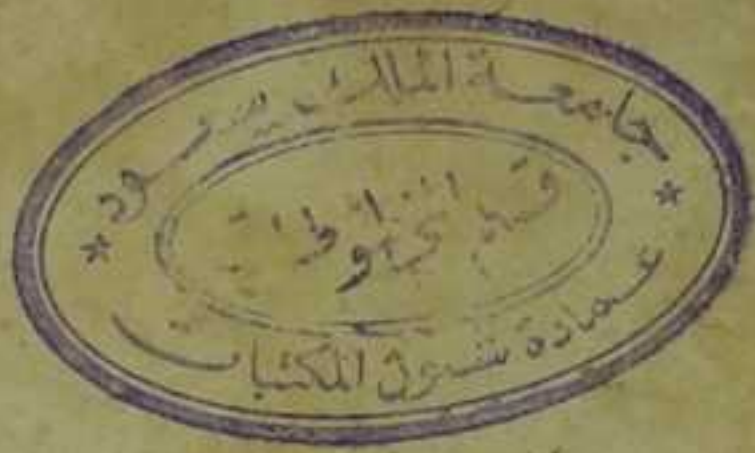 جامعة الملك سعود
قسم المخطوطات
* عمادة شئون المكتبات *